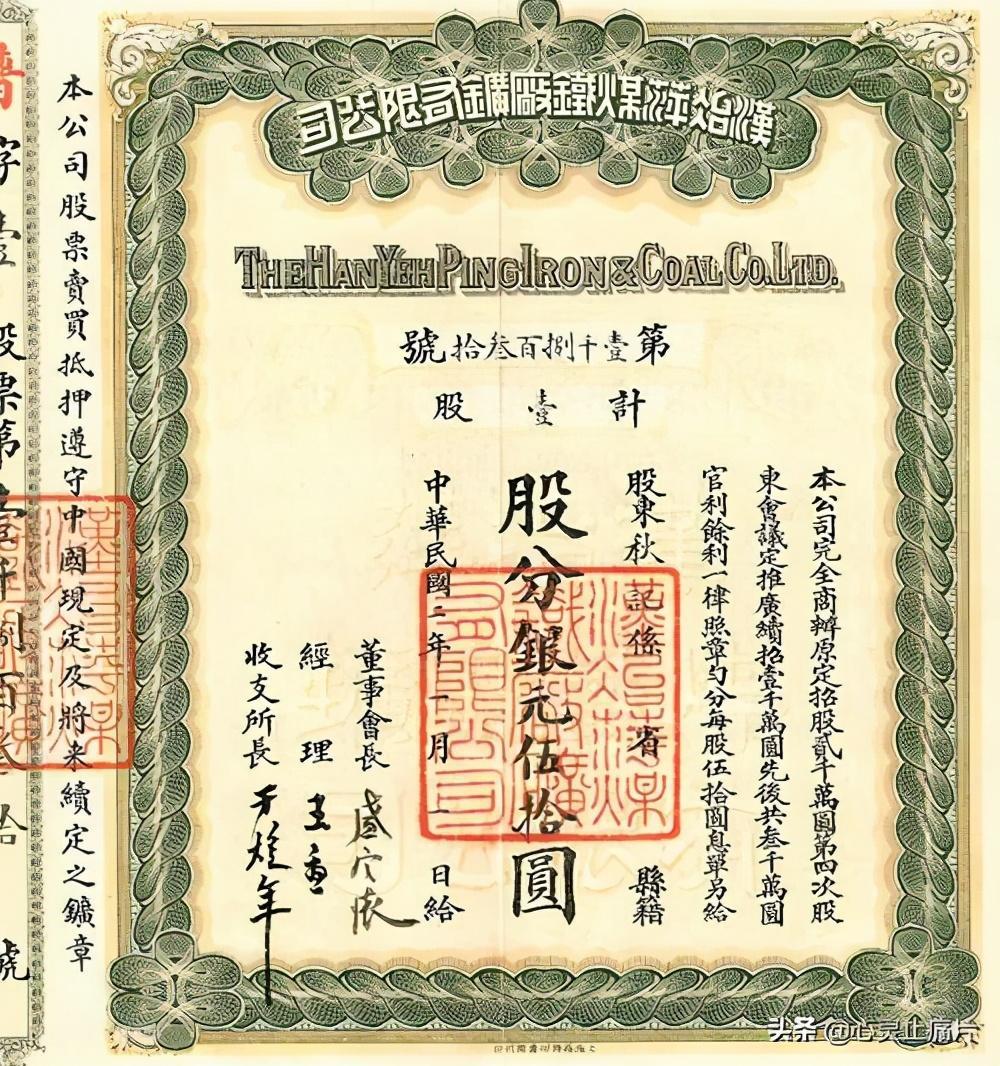 漢冶萍煤鐵廠礦有限公司
THE HAN YEH PING IRON & COAL CO. LTD.
第壹千捌百叁拾號
計壹股
本公司完全商辦原定招股貳千萬圓第四次股
東會議定推廣續招壹千萬圓先後共叁千萬圓
官利餘利一律照章勻分每股伍拾圓息單另給
股東秋記係 省 縣籍
股分銀元伍拾圓
中華民國二年一月一日給
董事會長
經理
收支所長
本公司股票賣買抵押遵守中國現定及將來續定之鑛章
字壹股票第壹千捌百叁拾號
头条 @心灵止痛片